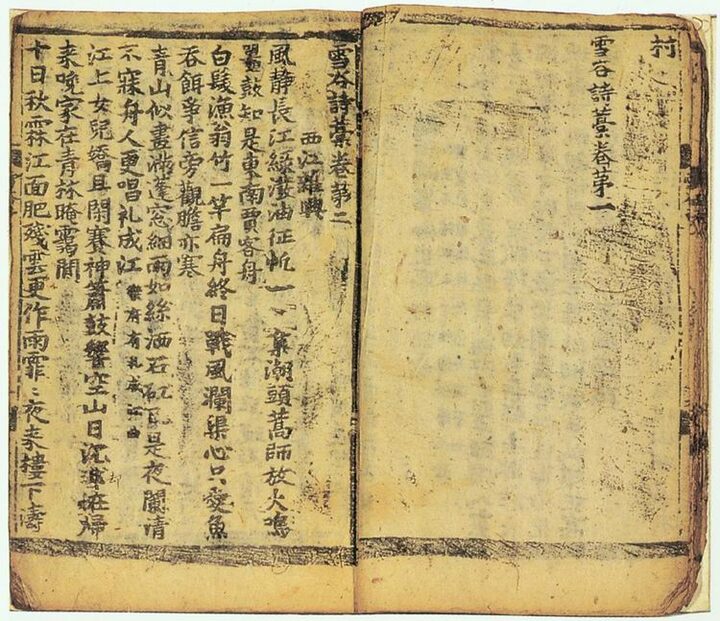 村
雪谷詩藁卷苐一
雪谷詩藁卷苐二
西江雜興
風静長江綠潑油征帆一〻 潮頭蒿師放火鳴
鼉鼓知是東南賈客舟
白髮漁翁竹一竿扁舟終日戰風瀾渠心只愛魚
吞餌爭信旁觀膽亦寒
青山似畫滿蓬窓細雨如絲洒石矼 是夜闌清
不寐舟人更唱礼成江 樂府有礼成江曲
江上女兒嬌且閑賽神簫鼓響空山日沉 帰
来晚家在青林晻靄間
十日秋霖江面肥殘雲更作雨霏〻夜来樓下濤